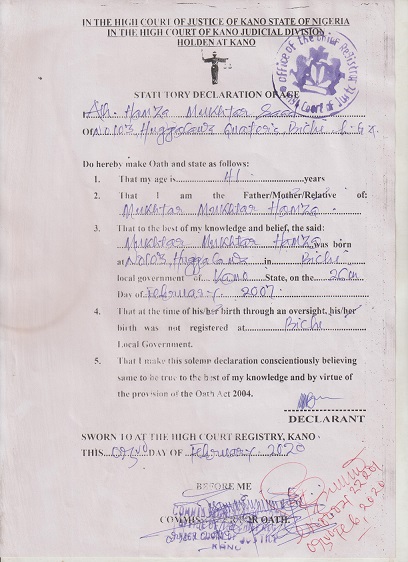 IN THE HIGH COURT OF JUSTICE OF KANO STATE OF NIGERIA
IN THE HIGH COURT OF KANO JUDICIAL DIVISION
HOLDEN AT KANO
Office of the Chief Registrar
STATUTORY DECLARATION OF AGE
I Alh. Hamza Mukhtar
Of No 105 Quaters Bichi L.G.A.
Do hereby make Oath and state as follows:
1. That my age is 41 years
2. That I am the Father/Mother/Relative of:
Mukhtar Mukhtar Hamza
3. That to the best of my knowledge and belief, the said:
Mukhtar Mukhtar Hamza was born
at in Bichi
local government of Kano State, on the 26th
Day of February 2007
4. That at the time of his/her birth through an oversight, his/her
birth was not registered at Bichi
Local Government.
5. That I make this solemn declaration conscientiously believing
same to be true to the best of my knowledge and by virtue of
the provision of the Oath Act 2004.
DECLARANT
SWORN TO AT THE HIGH COURT REGISTRY, KANO
THIS DAY OF February 2020
BEFORE ME
COMMISSIONER FOR OATH.
KANO